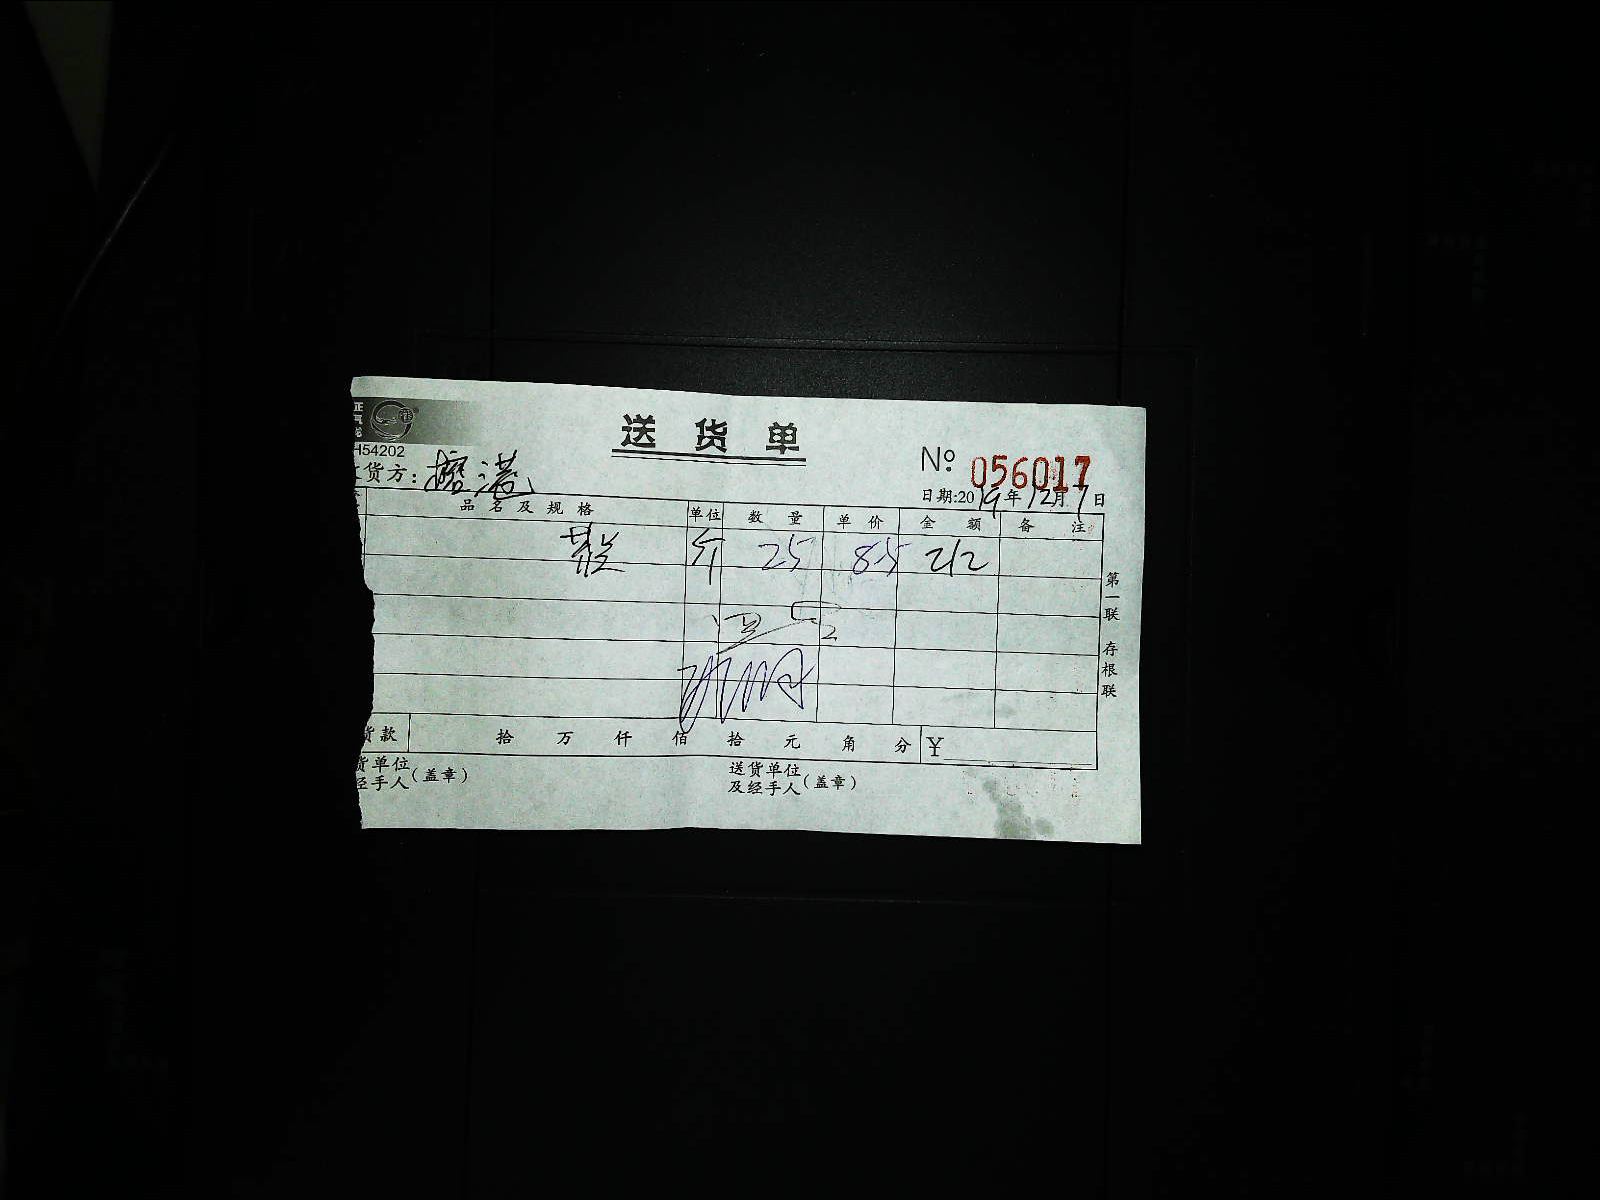 正气龙
H54202
送货单
№ 056017
货方：
日期:2019年12月7日
品名及规格 单位 数量 单价 金额 备注
斤 25 8.5 212
第一联 存根联
货款 拾 万 仟 佰 拾 元 角 分 ¥
货单位 经手人(盖章)
送货单位 及经手人(盖章)